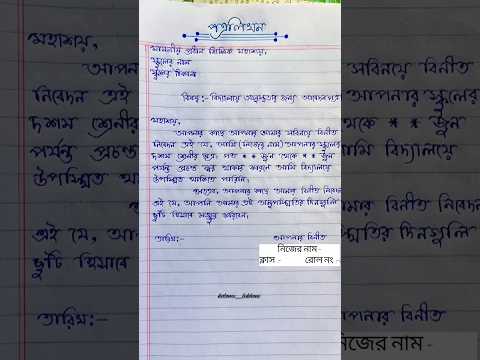 পত্রলিখন
মাননীয় প্রধান শিক্ষক মহাশয়,
স্কুলের নাম
স্কুলের ঠিকানা
বিষয় :- বিদ্যালয়ে অনুপস্থিতির জন্য আবেদন পত্র
মহাশয়,
আপনার কাছে আমার সবিনয়ে বিনীত
নিবেদন এই যে, আমি (নিজের নাম) আপনার স্কুলের
দশম শ্রেনীর ছাত্র। গত ** জুন থেকে ** জুন
পর্যন্ত প্রচন্ড জ্বর থাকার কারণে আমি বিদ্যালয়ে
উপস্থিত থাকিতে পারিনি।
অতএব, আপনার কাছে আমার বিনীত নিবেদন
এই যে, আপনি আমার এই অনুপস্থিতির দিনগুলি
ছুটি হিসাবে মঞ্জুর করবেন।
তারিখ:-
আপনার বিনীত
নিজের নাম-
ক্লাস - রোল নং -
মহাশয়,
আপনার
সবিনয়ে বিনীত
নিবেদন এই
আপনার স্কুলের
দশম শ্রেনীর
** জুন
পর্যন্ত প্রচন্ড
আমি বিদ্যালয়ে
উপস্থিত
নিবেদন
এই যে, আপ
স্থিতির দিনগুলি
ছুটি হিসাবে
তারিখ:-
আপনার বিনীত
নিজের নাম-